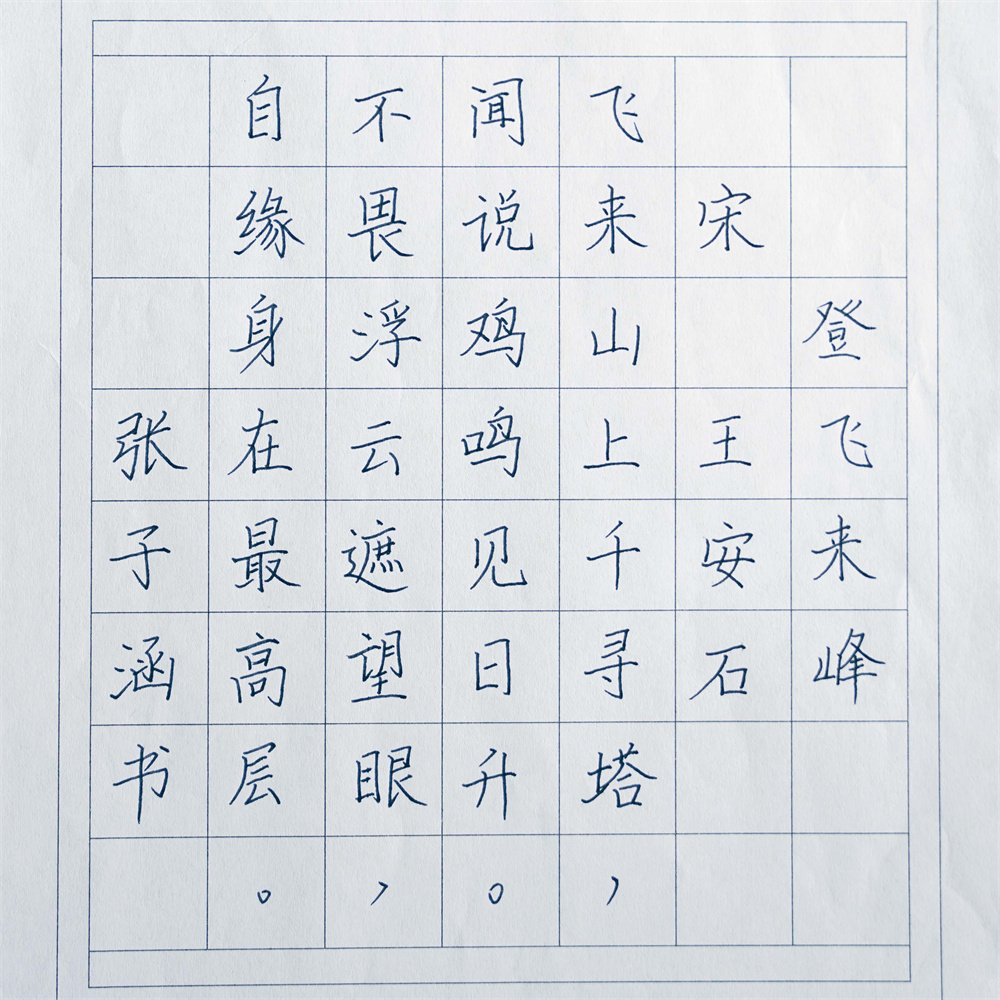 登飞来峰
宋 王安石
飞来山上千寻塔，
闻说鸡鸣见日升。
不畏浮云遮望眼，
自缘身在最高层。
张子涵书